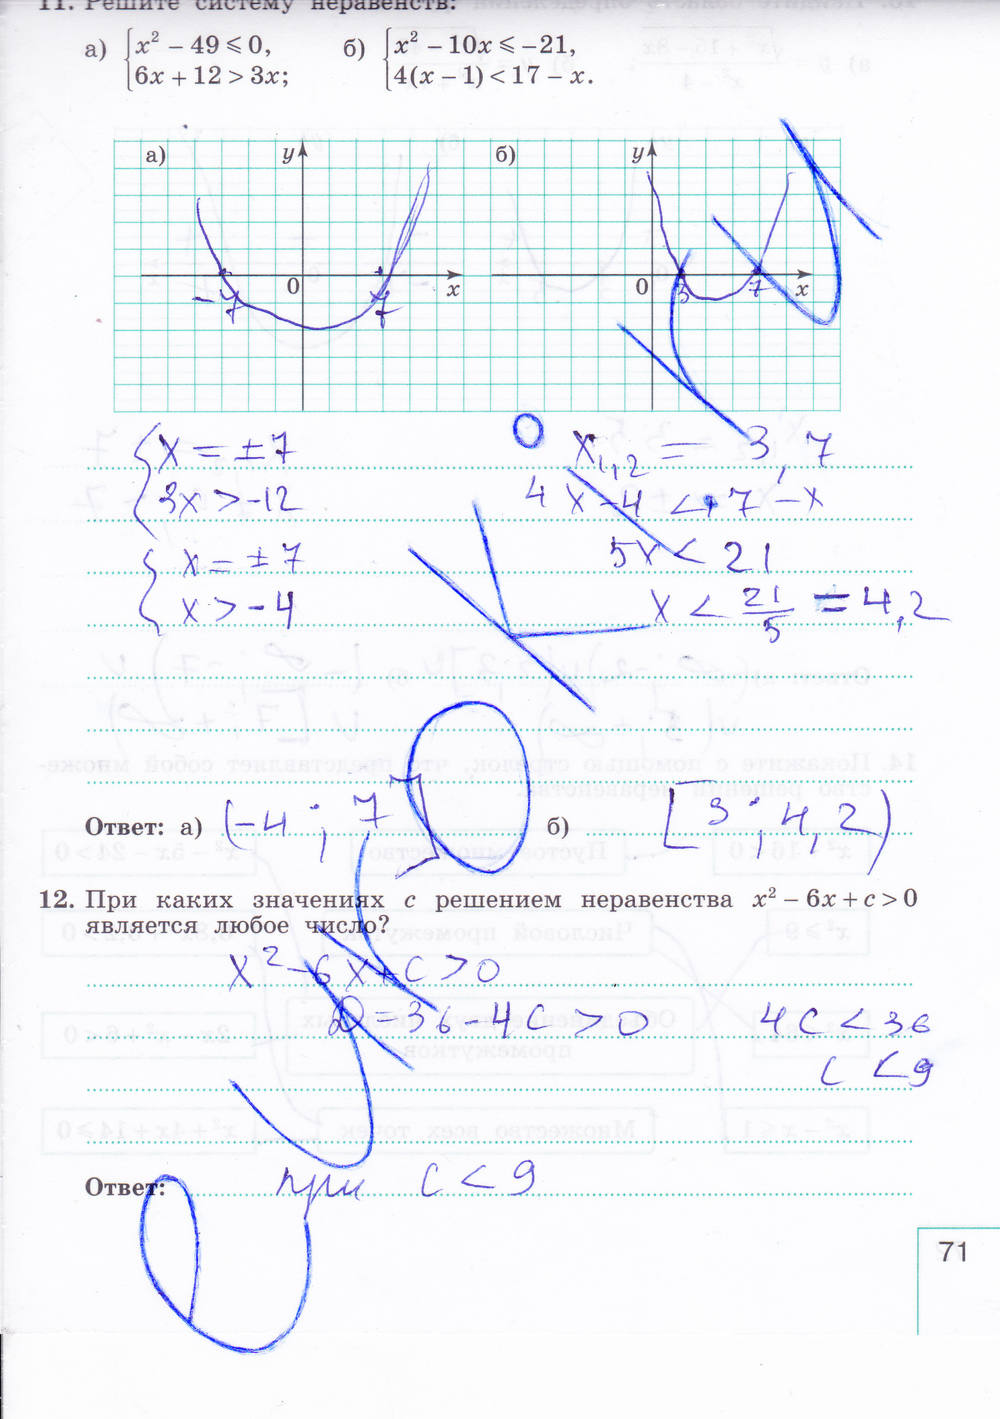 11. Решите систему неравенств:
а) { x² − 49 ⩽ 0,
6x + 12 > 3x;
б) { x² − 10x ⩽ −21,
4(x − 1) < 17 − x.
а) y
0 x
−7 7
б) y
0 x
3 7
{ x = ±7
3x > −12
{ x = ±7
x > −4
x₁,₂ = 3, 7
4x − 4 < 17 − x
5x < 21
x < 21/5 = 4,2
Ответ: а) (−4 ; 7] б) [3 ; 4,2)
12. При каких значениях c решением неравенства x² − 6x + c > 0
является любое число?
x² − 6x + c > 0
D = 36 − 4c > 0 4c < 36
c < 9
Ответ: при c < 9
71